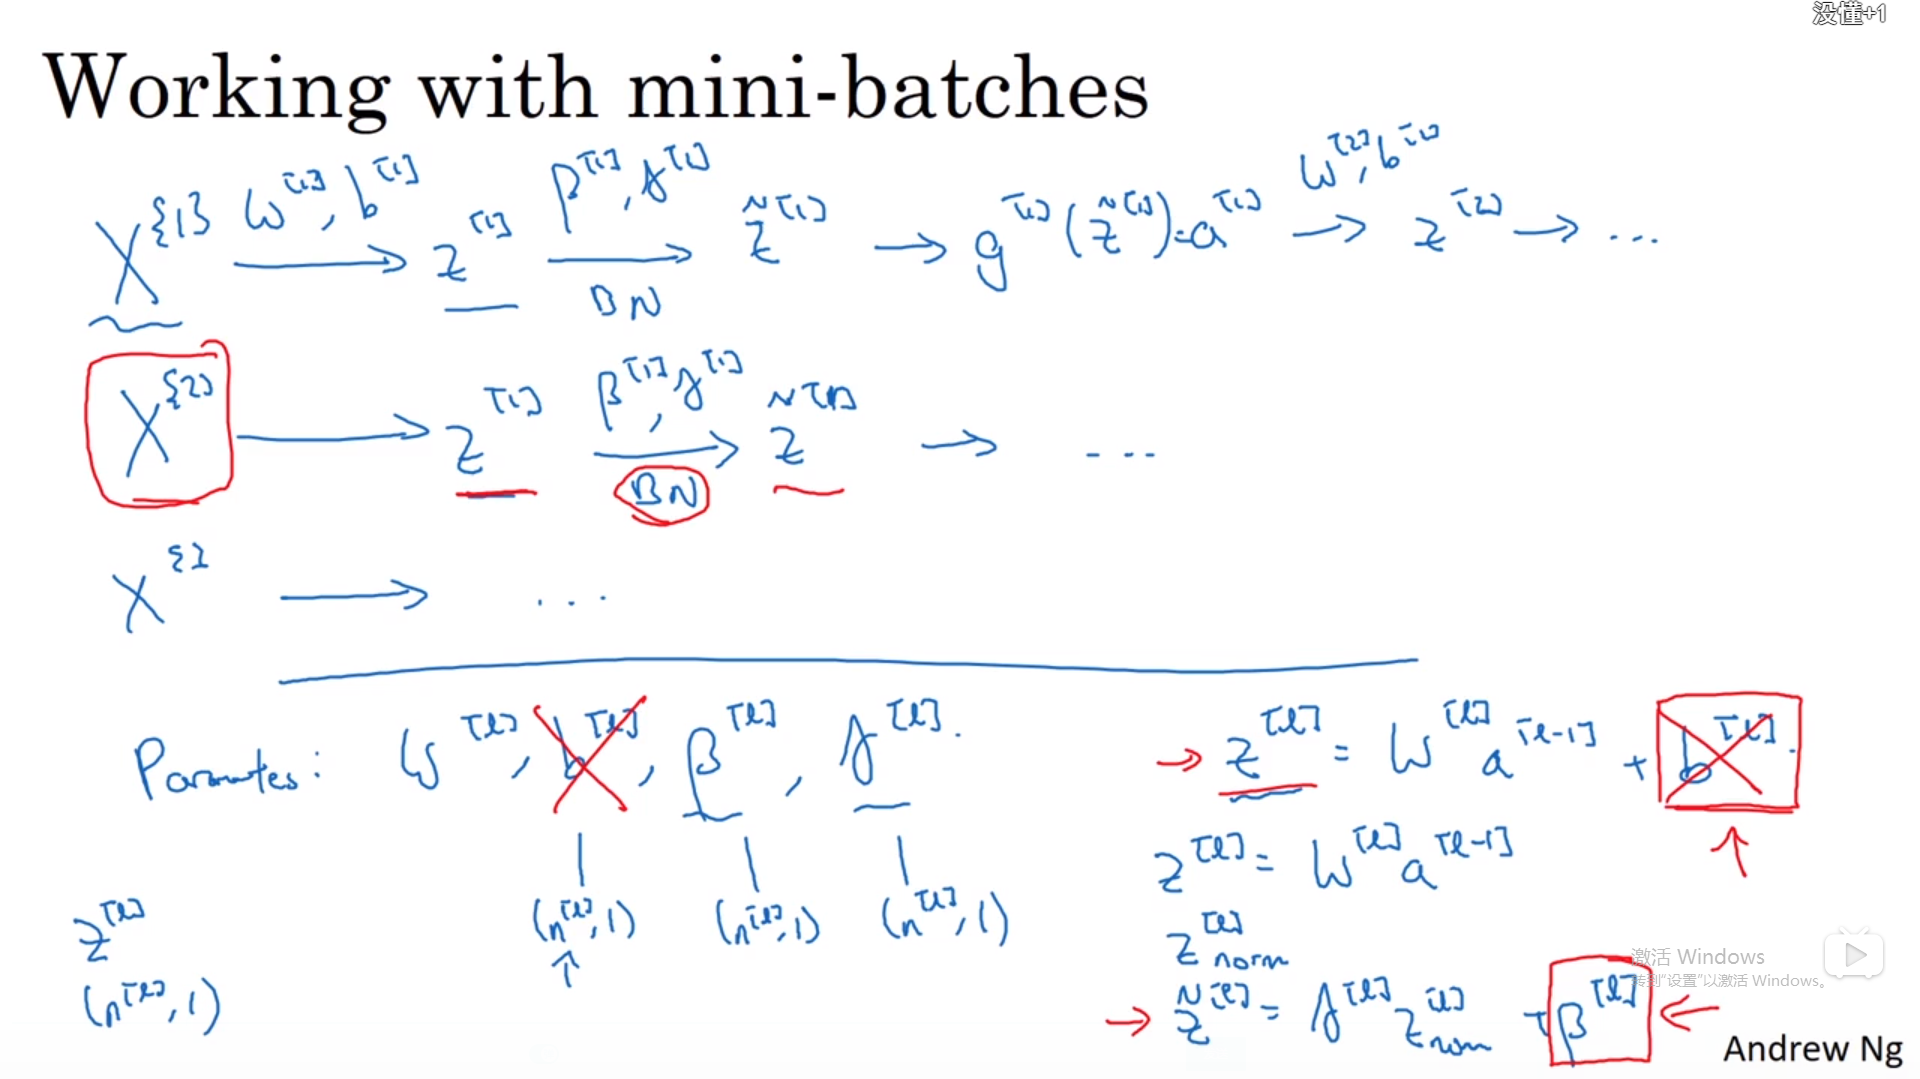 没懂+1
Working with mini-batches
X^{1} W^[1], b^[1] → z^[1] β^[1], γ^[1] → BN z̃^[1] → g^[1](z̃^[1]) = a^[1] W^[2], b^[2] → z^[2] → ...
X^{2} → z^[1] β^[1], γ^[1] → BN z̃^[1] → ...
X^{} → ...
Parameters: W^[l], b^[l], β^[l], γ^[l].
(n^[l], 1) (n^[l], 1) (n^[l], 1)
z^[l]
(n^[l], 1)
→ z^[l] = W^[l] a^[l-1] + b^[l].
z^[l] = W^[l] a^[l-1]
z^[l] norm
→ z̃^[l] = γ^[l] z^[l] norm + β^[l] ←
激活 Windows
转到"设置"以激活 Windows。
Andrew Ng